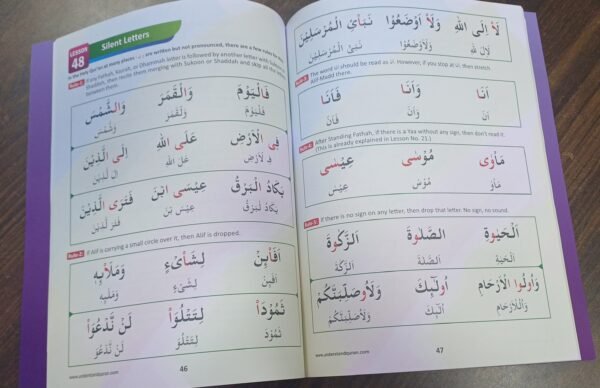 LESSON
48
Silent Letters
In the Holy Qur'an at many places are written but not pronounced, there are a few rules for
Rule-1: If any Fathah, Kasrah, or Dhammah letter is followed by another letter with Sukoon or
Shaddah, then recite them merging with Sukoon or Shaddah and skip all the
between them.
فَالْيَوْمَ وَالْقَمَرَ وَالشَّمْسَ
فَلْيَوْمَ وَلْقَمَرَ وَشَّمْسَ
فِى الْاَرْضِ عَلَى اللهِ اِلَى الَّذِيْنَ
فِ لْاَرْضِ عَلَ اللهِ اِلَ لَّذِيْنَ
يَكَادُ الْبَرْقُ عِيْسَى ابْنَ فَتَرَى الَّذِيْنَ
يَكَادُ لْبَرْقُ عِيْسَ بْنَ فَتَرَ لَّذِيْنَ
Rule-2: If Alif is carrying a small circle over it, then Alif is dropped.
اَفَا۟ئِنْ لِشَا۟ىْءٍ وَمَلَا۟ئِهٖ
اَفَئِنْ لِشَىْءٍ وَمَلَئِهٖ
ثَمُوْدَا۟ لِتَتْلُوَا۟ لَنْ نَّدْعُوَا۟
ثَمُوْدَ لِتَتْلُوَ لَنْ نَّدْعُوَ
www.understandquran.com
46
لَا۟ اِلَى اللهِ وَلَا۟ اَوْضَعُوْا نَبَا۟ئِ الْمُرْسَلِيْنَ
لَاِلَ اللهِ وَلَاَوْضَعُوْا نَبَئِ الْمُرْسَلِيْنَ
The word should be read as However, if you stop at then stretch
Alif-Madd there.
اَنَا۟ وَاَنَا۟ فَاَنَا۟
اَنَ وَاَنَ فَاَنَ
Rule-4: After Standing Fathah, if there is a Yaa without any sign, then don't read it.
(This is already explained in Lesson No. 21.)
مَاْوٰى مُوْسٰى عِيْسٰى
مَاْوٰ مُوْسٰ عِيْسٰ
Rule-5: If there is no sign on any letter, then drop that letter. No sign, no sound.
اَلْحَيٰوةِ اَلصَّلٰوةَ اَلزَّكٰوةَ
اَلْحَيٰةِ اَلصَّلٰةَ اَلزَّكٰةَ
وَاُولُوا الْاَرْحَامِ اُولٰٓئِكَ وَلَاُوصَلِّبَنَّكُمْ
وَاُلُلْاَرْحَامِ اُلٰٓئِكَ وَلَاُصَلِّبَنَّكُمْ
www.understandquran.com
47